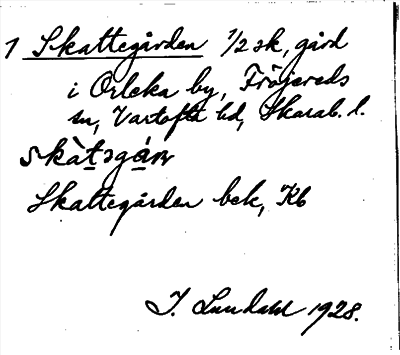 1 Skattegården 1/2 sk, gård
i Orleka by, Fröjereds
sn, Vartofta hd, Skarab. l.
skàt̲sgá̲rn
Skattegården bek, Kb
I. Lundahl 1928.